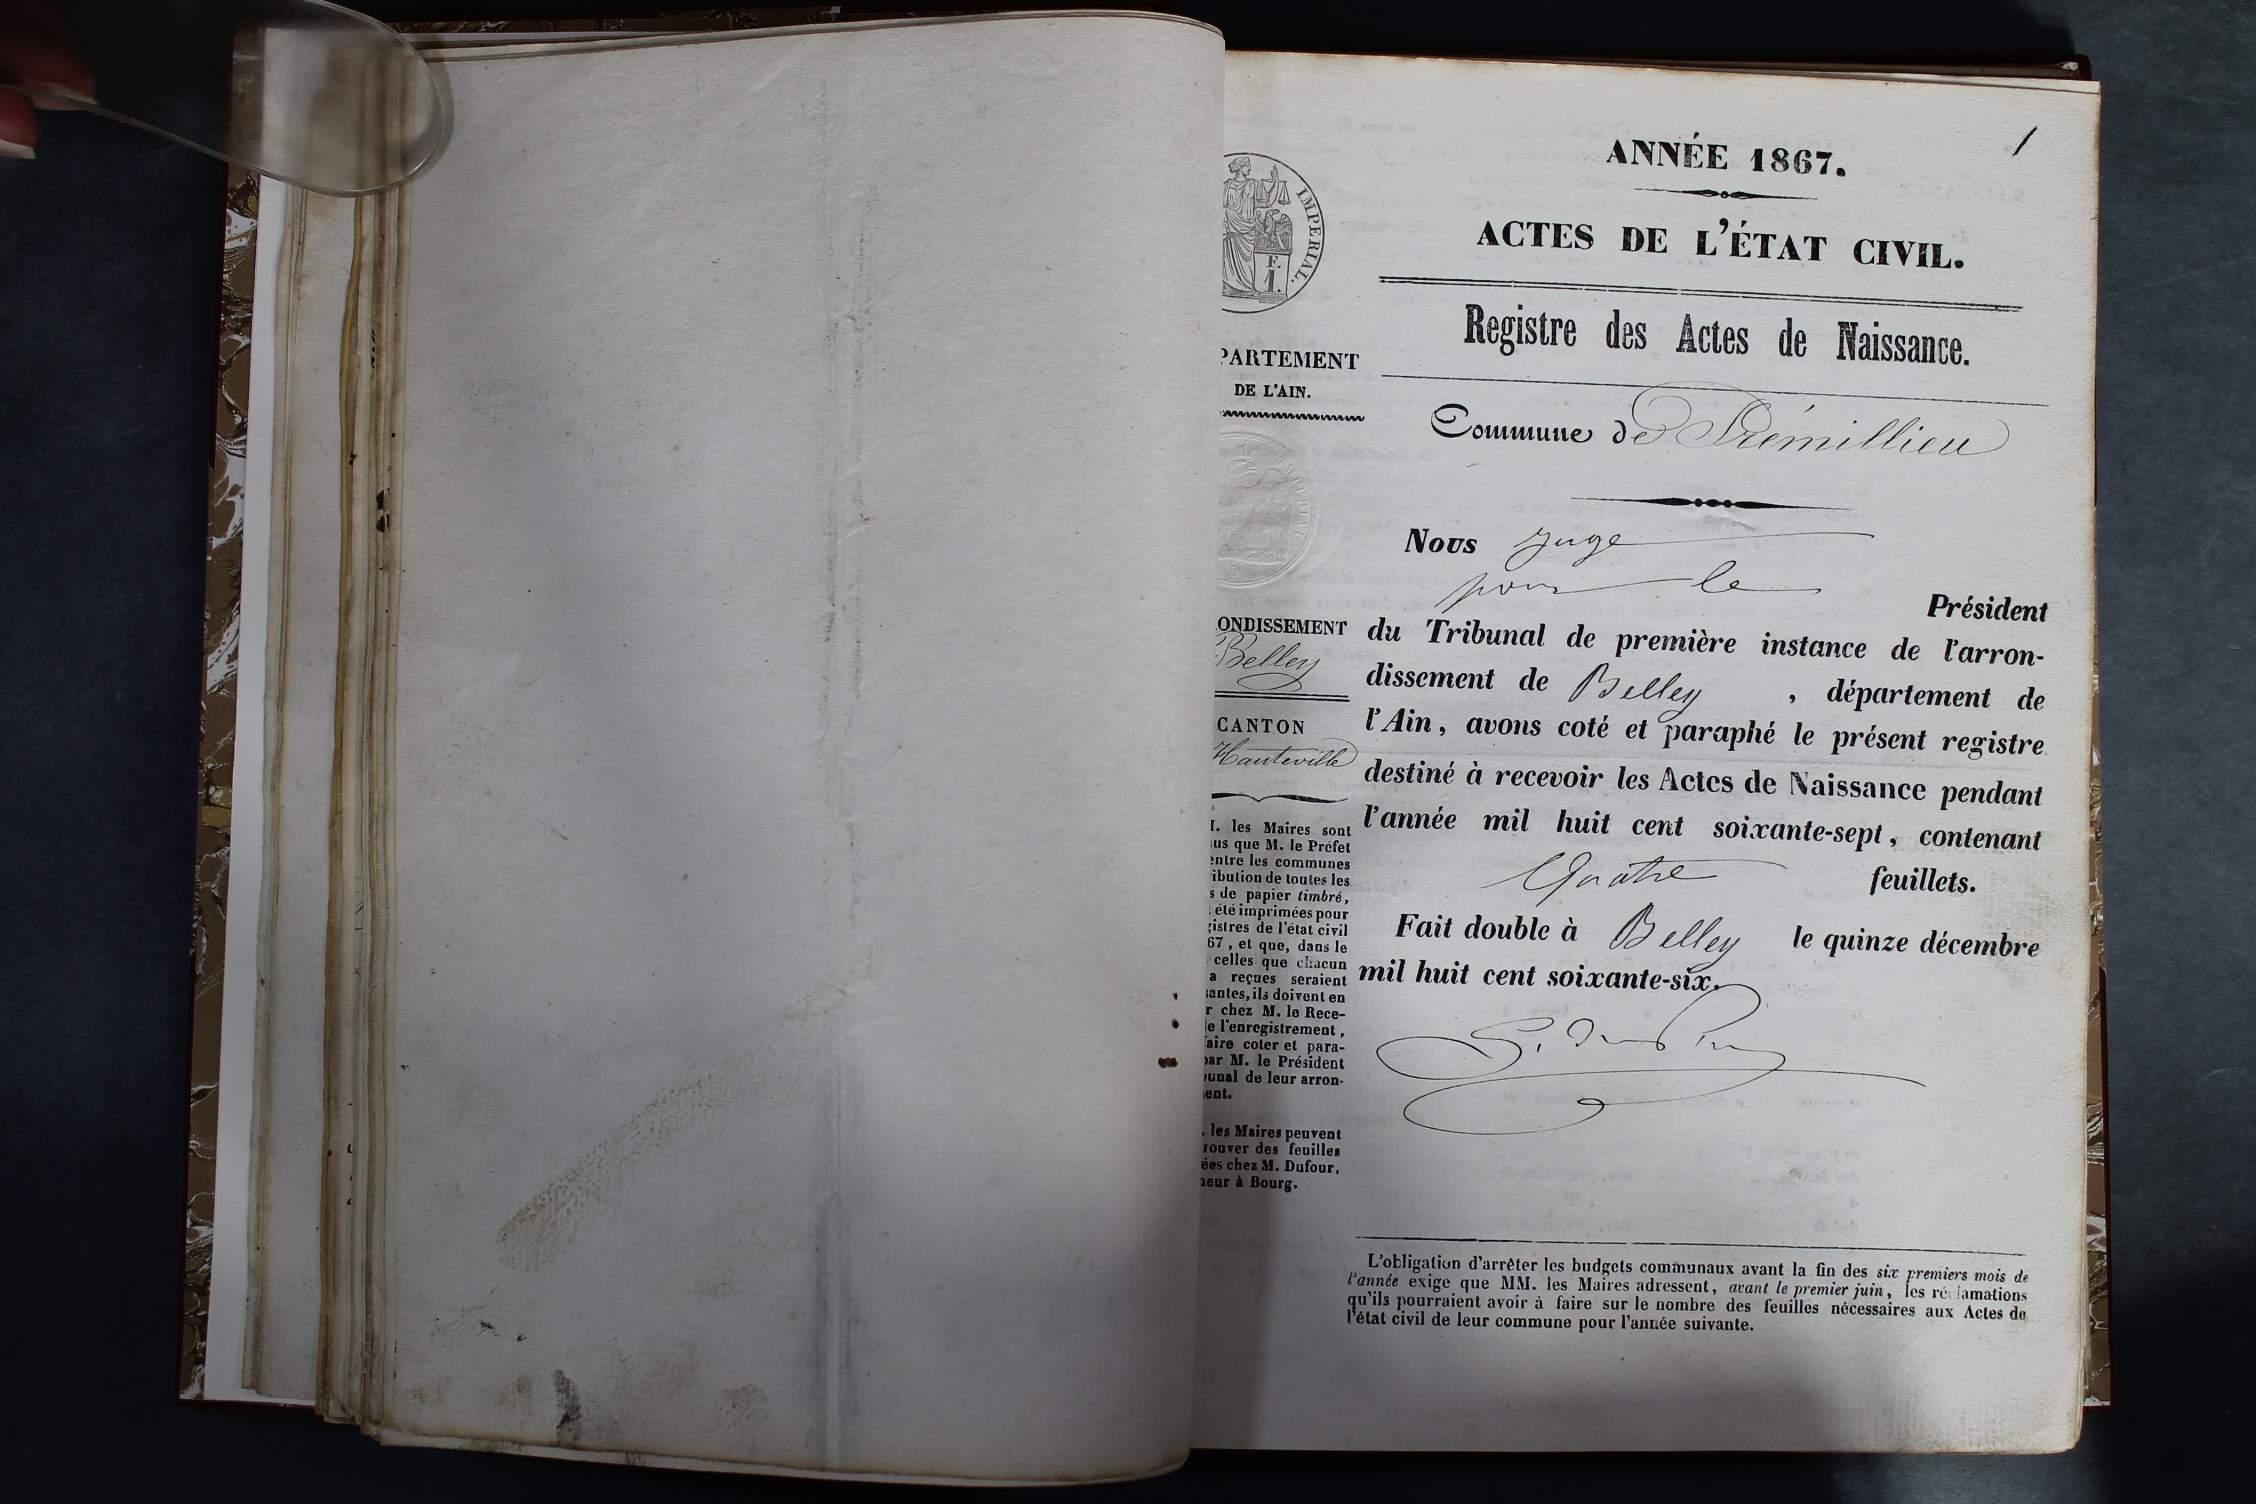 1
ANNÉE 1867.
ACTES DE L'ÉTAT CIVIL.
Registre des Actes de Naissance.
Commune de Prémillieu
Nous juge
pour le
Président
du Tribunal de première instance de l'arron-
dissement de Belley , département de
l'Ain, avons coté et paraphé le présent registre
destiné à recevoir les Actes de Naissance pendant
l'année mil huit cent soixante-sept, contenant
Quatre feuillets.
Fait double à Belley le quinze décembre
mil huit cent soixante-six.
L'obligation d'arrêter les budgets communaux avant la fin des six premiers mois de
l'année exige que MM. les Maires adressent, avant le premier juin, les réclamations
qu'ils pourraient avoir à faire sur le nombre des feuilles nécessaires aux Actes de
l'état civil de leur commune pour l'année suivante.
IMPERIAL.
F.
1.
PARTEMENT
DE L'AIN.
ONDISSEMENT
Belley
CANTON
Hauteville
les Maires sont
us que M. le Préfet
entre les communes
ibution de toutes les
s de papier timbré,
été imprimées pour
gistres de l'état civil
67, et que, dans le
celles que chacun
a reçues seraient
santes, ils doivent en
r chez M. le Rece-
de l'enregistrement,
faire coter et para-
par M. le Président
bunal de leur arron-
ment.
. les Maires peuvent
rouver des feuilles
ées chez M. Dufour,
meur à Bourg.